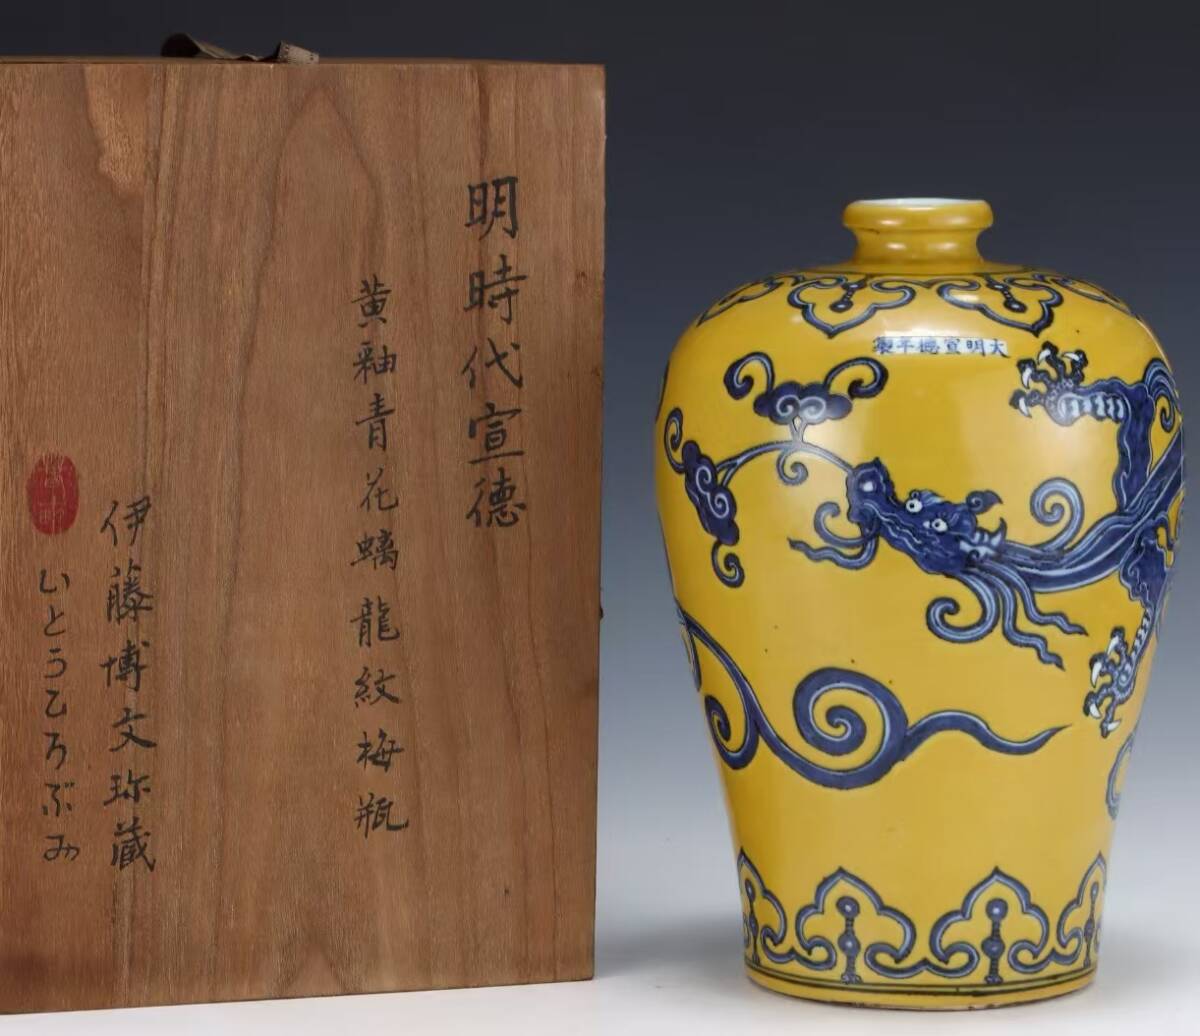 明時代宣德
黄釉青花螭龍紋梅瓶
伊藤博文珎蔵
いとうひろぶみ
大明宣德年製